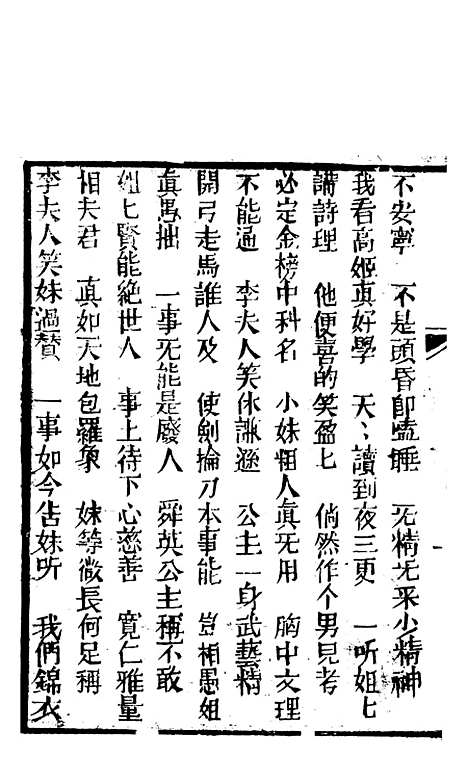 不安寧　不是頭昏即瞌睡　旡精旡采少精神
我看高姬真好學　天〻讀到夜三更　一听姐七
講詩理　他便喜的笑盈七　倘然作个男兒考
必定金榜中科名　小妹粗人真旡用　胸中文理
不能通　李夫人笑休謙遜　公主一身武藝精
開弓走馬誰人及　使劍掄刀本事能　豈相愚姐
真愚拙　一事旡能是廢人　舜英公主稱不敢
姐七賢能絶世人　事上待下心慈善　寬仁雅量
相夫君　真如天地包羅象　妹等微長何足稱
李夫人笑妹過贊　一事如今告妹听　我們錦衣